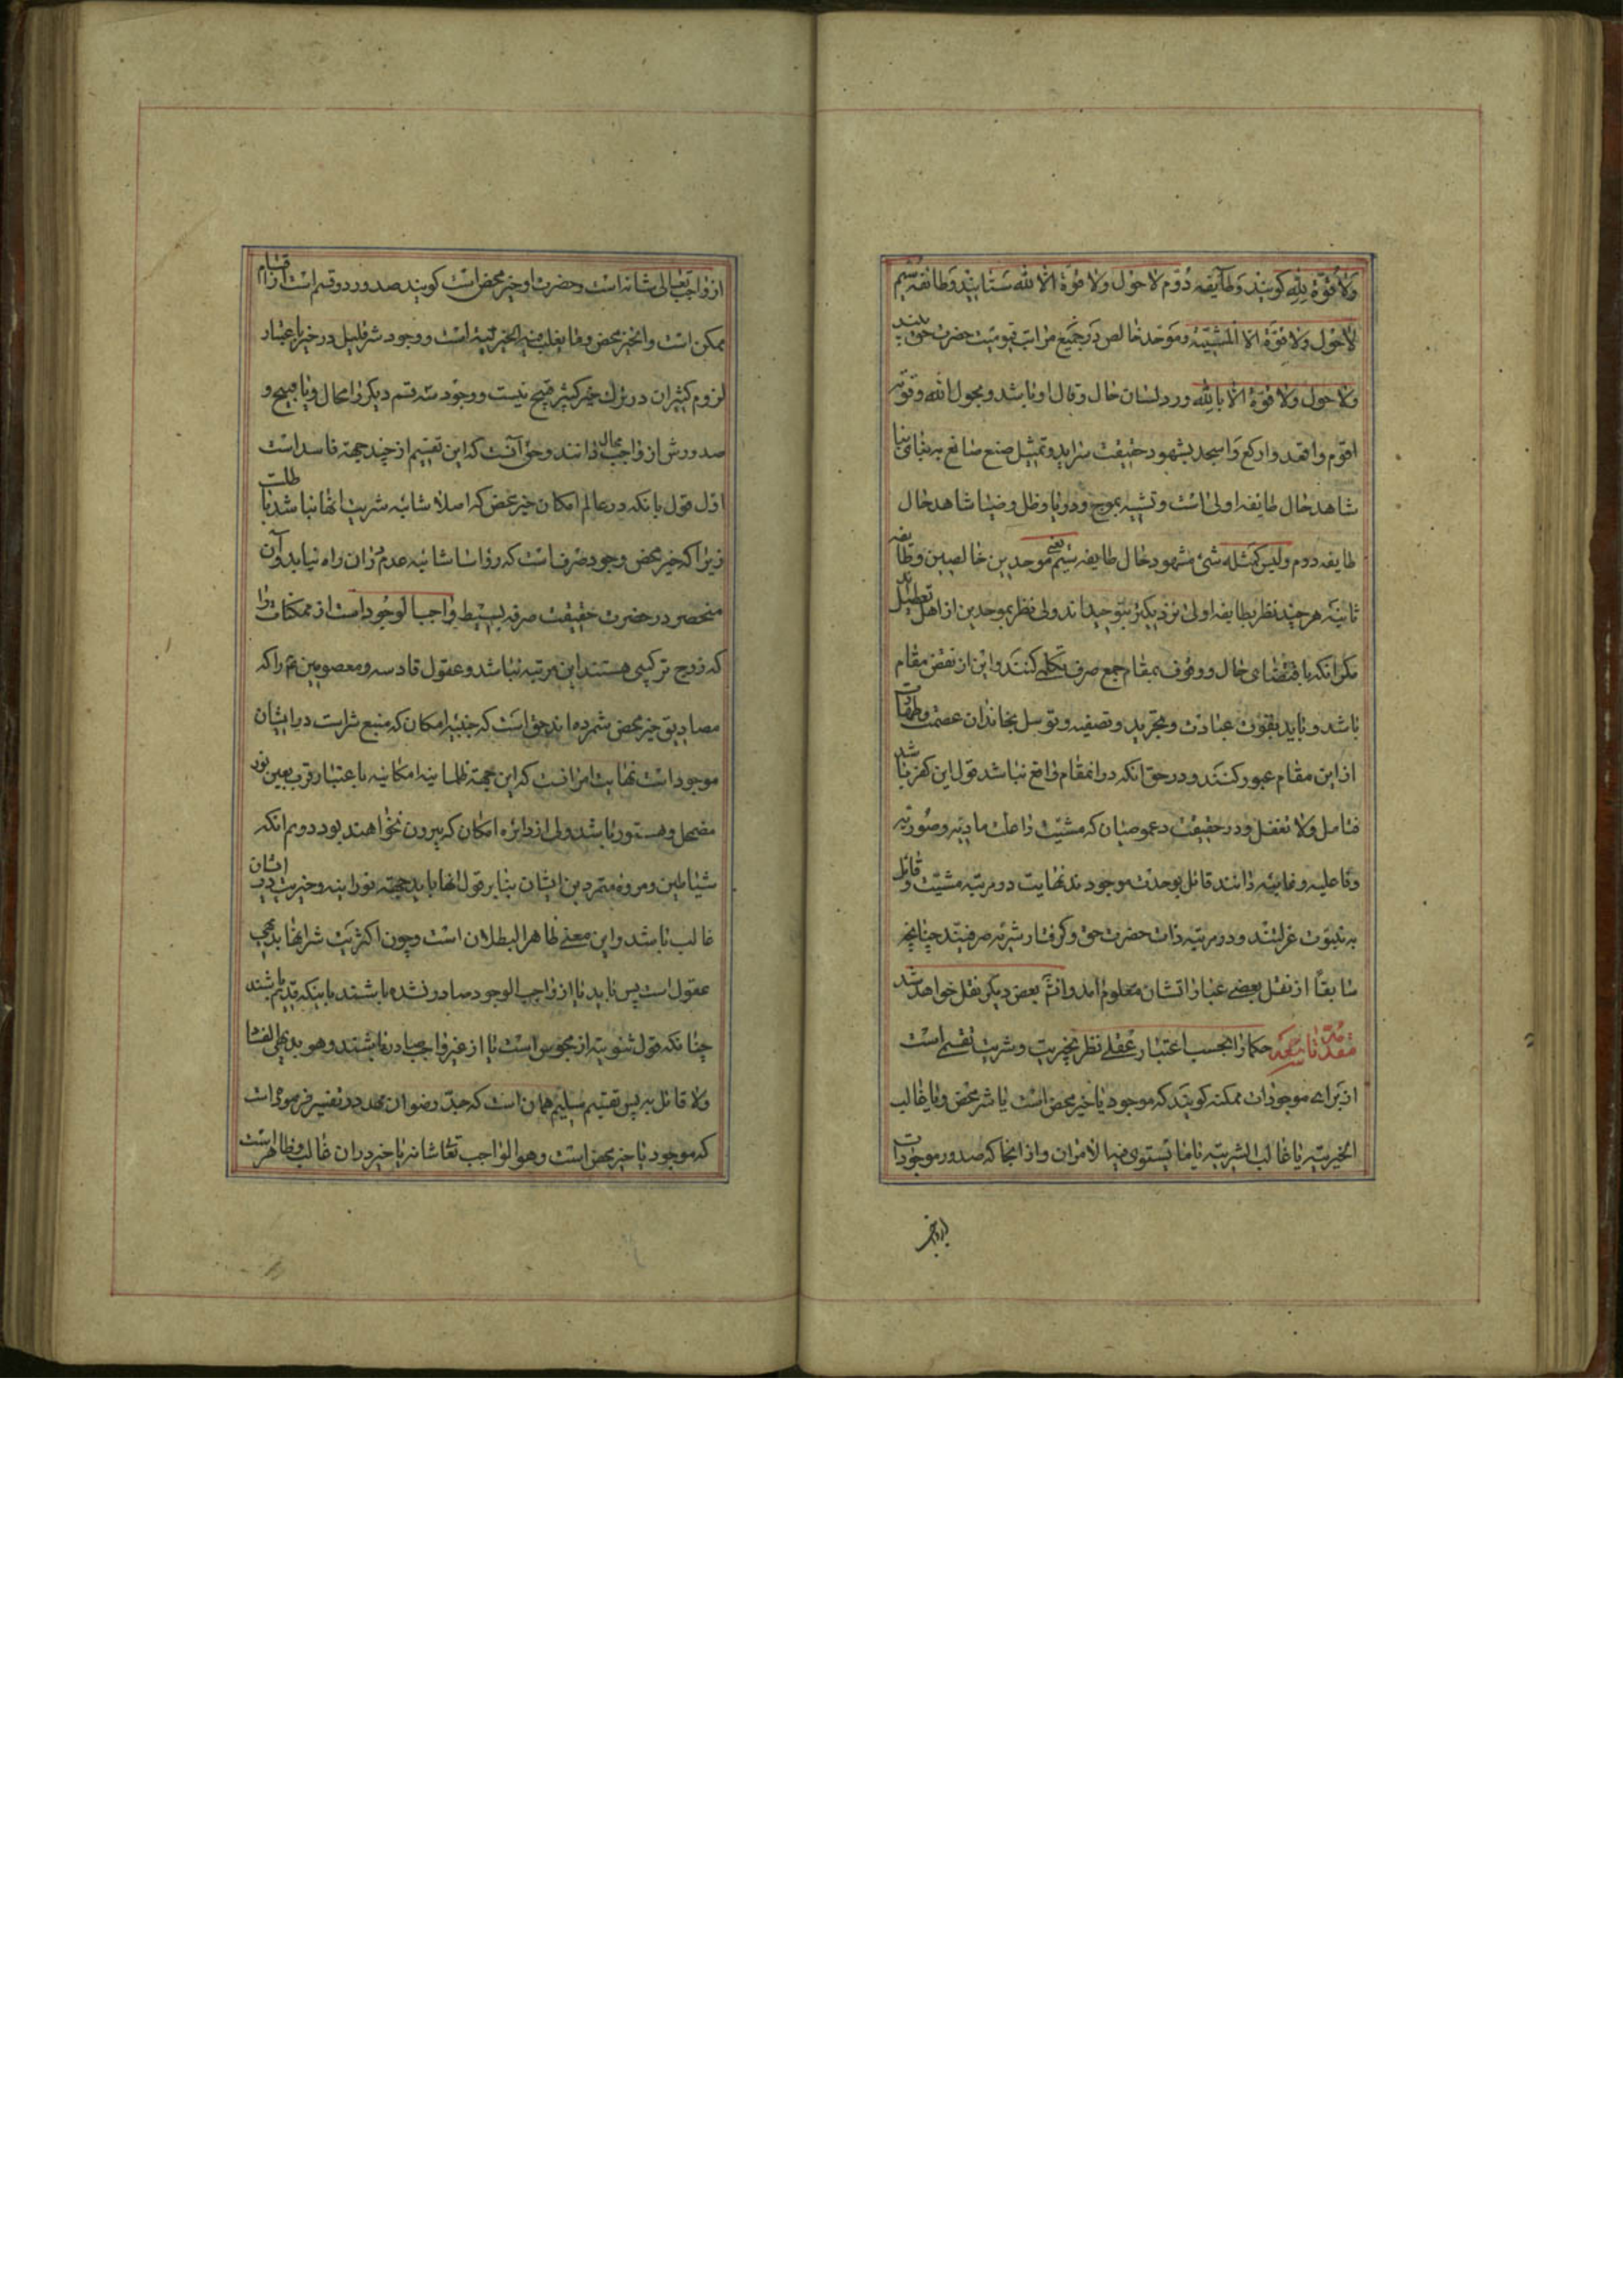 ولا قوة لله کویند وطایفه دوم لا حول ولا قوة الا لله ستایند وطائفه سیم
لا حول ولا قوة الا المشیته وموحد خالص در جمیع مراتب قیومیت حضرت حق بیند
ولا حول ولا قوة الا بالله ورد لسان حال وقال او باشد وبحول الله وقوته
اقوم واقعد وارکع واسجد بشهود حقیقت سراید وتمثیل صنع صانع به بنای بنا
شاهد حال طایفه اولی است وتشبیه بموج ودریا وظل وضیا شاهد حال
طایفه دوم ولیس کمثله شئ مشهود حال طایفه سیم یعنی موحدین خالصین وطایفه
ثانیه هر چند نظر بطایفه اولی نزدیکتر بتوحیداند ولی نظر بموحدین از اهل تعطیل اند
مکر انکه باقتضای حال ووقوف بمقام جمع صرف تکلم کنند واین از نقض مقام
باشد وباید بقوت عبادت وتجرید وتصفیه وتوسل بخاندان عصمت وطهارت
از این مقام عبور کنند ودر حق انکه در انمقام واقع نباشد قول این کفر باشد
فتامل ولا تغفل ودر حقیقت دعموصیان که مشیت را علت مادیه وصوریه
وفاعلیه وغائیه دانند قائل بوحدت موجودند نهایت در مرتبه مشیت وقائل
به ثنویت عزلتند ودر مرتبه ذات حضرت حق وکرفتار شرک صرفیند چنانچه
سابقا از نقل بعضی عباراتشان معلوم امد وانش بعض دیکر نقل خواهد شد
مقدمه تاسعه حکما را بحسب اعتبار عقلی نظر بخیریت وشریت تقسیمی است
از برای موجودات ممکنه کویند که موجود یا خیر محض است یا شر محض ویا غالب
الخیریته یا غالب الشریته یا ما یستوی فیها الامران واز انجا که صدور موجودات
از واجب تعالی شانه است وحضرت او خیر محض است کویند صدور دو قسم است از اقسام
ممکن است وانخیر محض وما یغلب فیه الخیریته است ووجود شر قلیل در خیر باعتبار
لزوم کثیران در ترک خیر کثیر قبیح نیست ووجود سه قسم دیکر را محال ویا قبیح و
صدورش از واجب محال دانند وحق آنست که این تقسیم از چند جهة فاسد است
اول قول بانکه در عالم امکان خیر محض که اصلا شائبه شریت انها نباشد باطلست
زیرا که خیر محض وجود صرف است که راسا شائبه عدم در ان راه نیابد وآن
منحصر در حضرت حقیقت صرفه بسیطه واجب الوجود است از ممکنات را
که زوج ترکیبی هستند این مرتبه نباشد وعقول قادسه ومعصومین ع را که
مصادیق خیر محض شمرده اند حق است که جنبه امکان که منبع شر است در ایشان
موجود است نهایت امر انست که این جهة ظلمانیه امکانیه باعتبار قرب بعین نور
مضمحل ومستور باشد ولی از دایره امکان که بیرون نخواهند بود دویم انکه
شیاطین ومرده متمردین ایشان بنابر قول انها باید جهة نورانیه وخیریت در ایشان
غالب باشد واین معنی ظاهر البطلان است وچون اکثریت شر انها بدیهی
عقول است پس باید یا از واجب الوجود صادر نشده باشند باینکه قدیم باشند
چنانکه قول ثنویه از مجوس است یا از غیر واجب صادر باشند وهو بدیهی الفساد
ولا قائل به پس تقسیم سلیم همان است که جد رضوان مهد در تفسیر فرموده است
که موجود یا خیر محض است وهو الواجب تعالی شانه یا خیر در ان غالب وظاهر است
از واجب